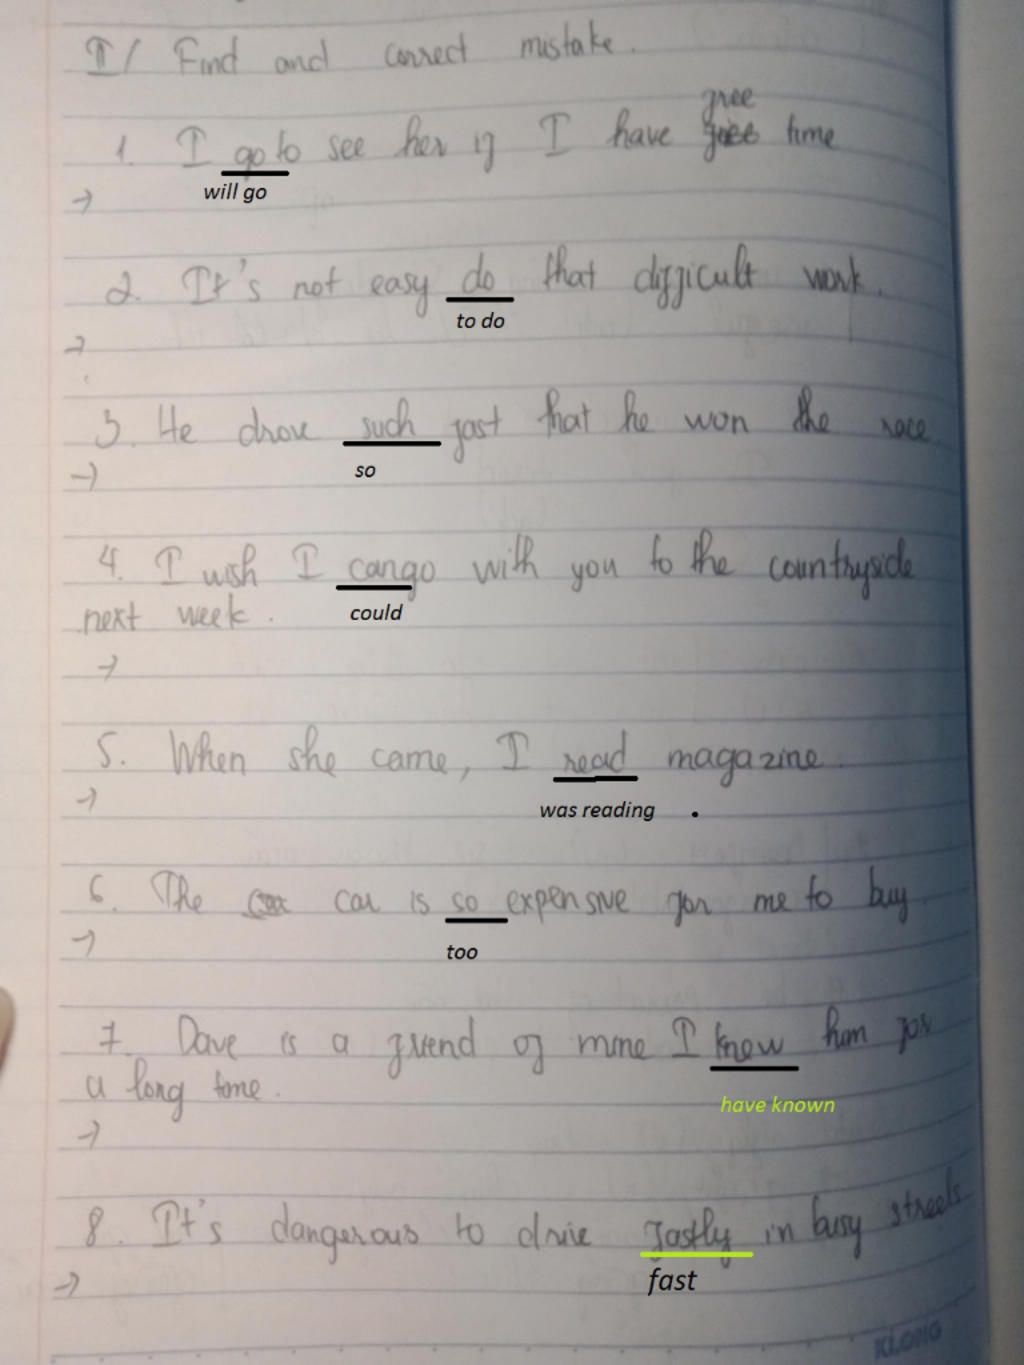 II/ Find and correct mistake.
free
1. I go to see her if I have free time
will go
→
2. It's not easy do that difficult work.
to do
→
3. He drove such fast that he won the race
so
→
4. I wish I can go with you to the countryside
next week.
could
→
5. When she came, I read magazine.
was reading .
→
6. The car is so expensive for me to buy
too
→
7. Dave is a friend of mine I know him for
a long time.
have known
→
8. It's dangerous to drive fastly in busy streets
fast
→
KLONG